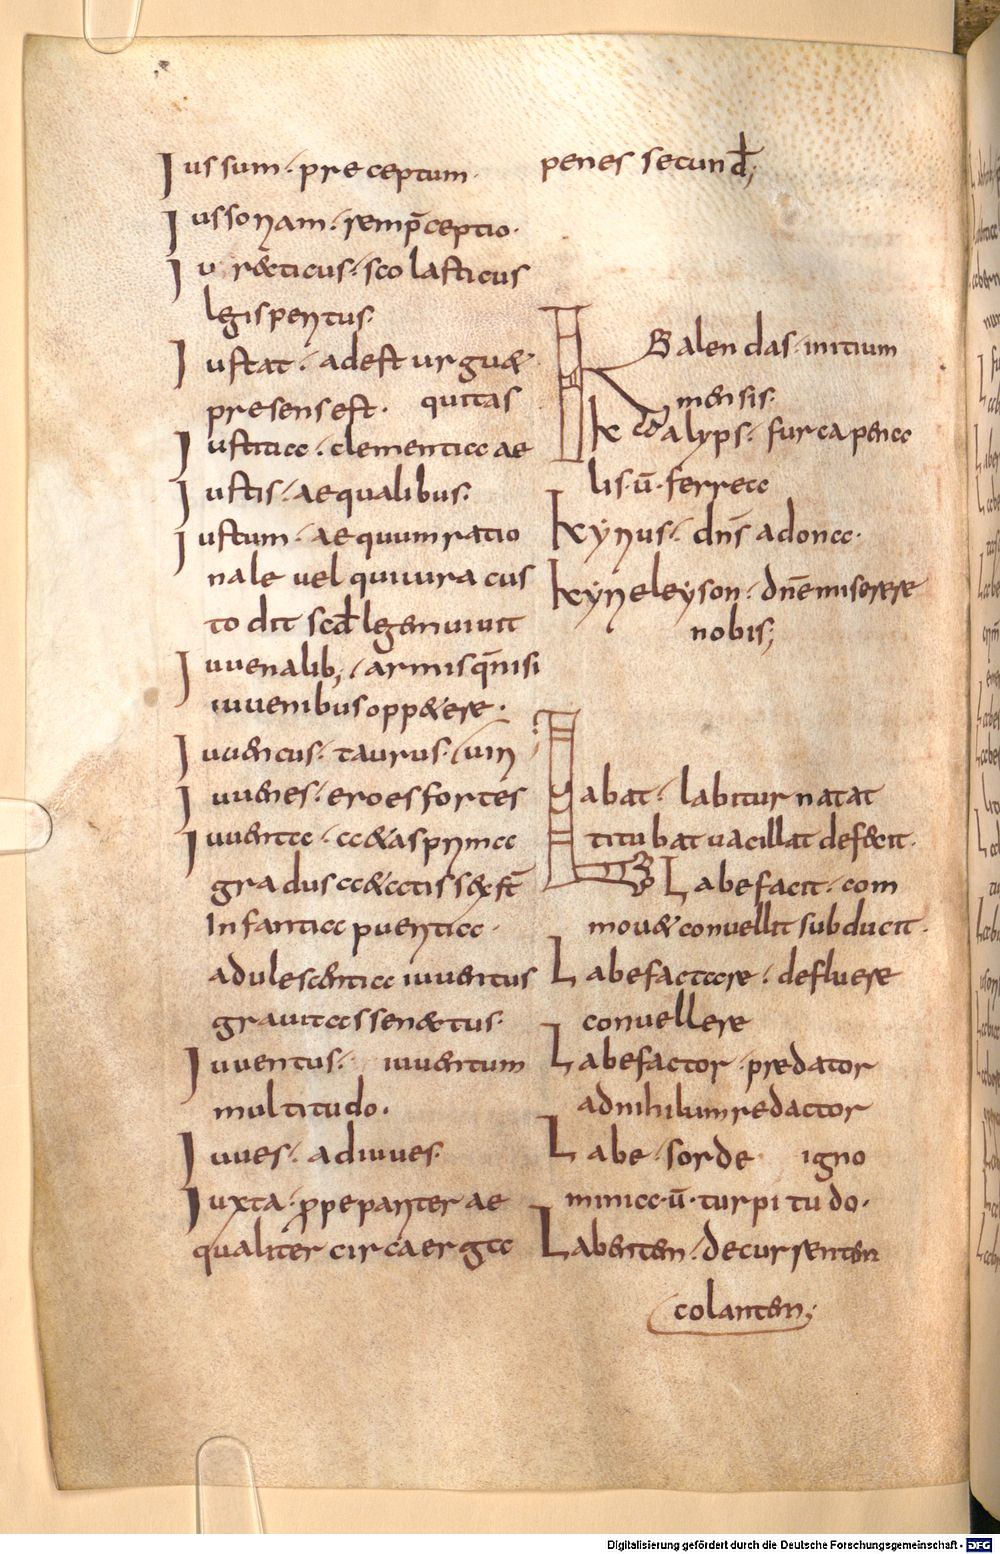 Iussum· preceptum·
Iussonam· remp̄ceptio·
Iu r&ticus· scolasticus
legisperitus·
Iustat· adest urgu&·
presensest· quitas
Iustitia· clementia ae
Iustis· aequalibus·
Iustum· aequum ratio
nale uel qui iura cus
todit scd̄ legem uiuit
Iuuenalib; armis q̄nisi
iuuenibus opp&ere·
Iuuencus· taurus· iun
Iuuenes· eroes fortes
Iuuenta· a&as prima
gradus a&atis s& est̄
Infantia pueritia·
adulescentia iuuentus
grauitas senectus·
Iuuentus· iuuentum
multitudo·
Iuues· adiuues·
Iuxta· p̄pe pariter ae
qualiter circa erga
penes secund̄;
Kalendas· initium
mensis·
K catalyps· furca penca
lis· ū· ferrea
Kyrius· dn̄s adonea·
Kyrieleyson· dn̄e miserere
nobis;
Labat· labitur natat
titubat uacillat defecit·
Labefacit· com
mou& conuellit subducit·
Labefactare· defluere
conuellere
Labefactor· predator
adnihilum redactor
Labe· sorde igno
minia· ū· turpitudo·
Labentem· decurrentem
colantem;
Digitalisierung gefördert durch die Deutsche Forschungsgemeinschaft - DFG